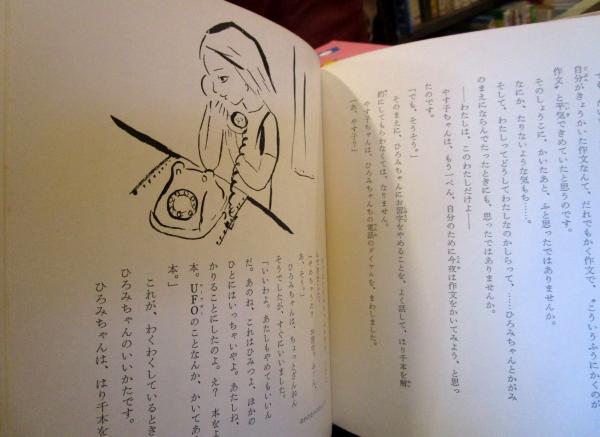 自分がきょうかいた作文なんて、だれでもかく作文で、“こういうふうにかくのが
作文”と平気できめていたと思うのです。
そのしょうこに、かいたあと、ふと思ったではありませんか。
なにか、たりないような気もち……。
そして、わたしってどうしてわたしなのかしらって、……ひろみちゃんとかがみ
のまえにならんでたったときにも、思ったではありませんか。
——わたしは、このわたしだけよ——
やす子ちゃんは、もう一ぺん、自分のために今夜は作文をかいてみよう、と思っ
たのです。
「でも、そうそう。」
そのまえに、ひろみちゃんにお習字をやめることを、よく話して、はり千本を解
約にしてもらわなくては、なりません。
やす子ちゃんは、ひろみちゃんちの電話のダイヤルを、まわしました。
「あ、やす子？」
あ、そう。」
ひろみちゃんは、ちょっとざんねん
そうでしたが、すぐにいいました。
「いいわよ。あたしもやめてもいいん
だ。あのね、これはひみつよ、ほかの
ひとにはいっちゃいやよ。あたしね、
かりることにしたのよ。え？　本をよ
本。UFOのことなんか、かいてあ
本。」
これが、わくわくしているとき
ひろみちゃんのいいかたです。
ひろみちゃんは、はり千本を